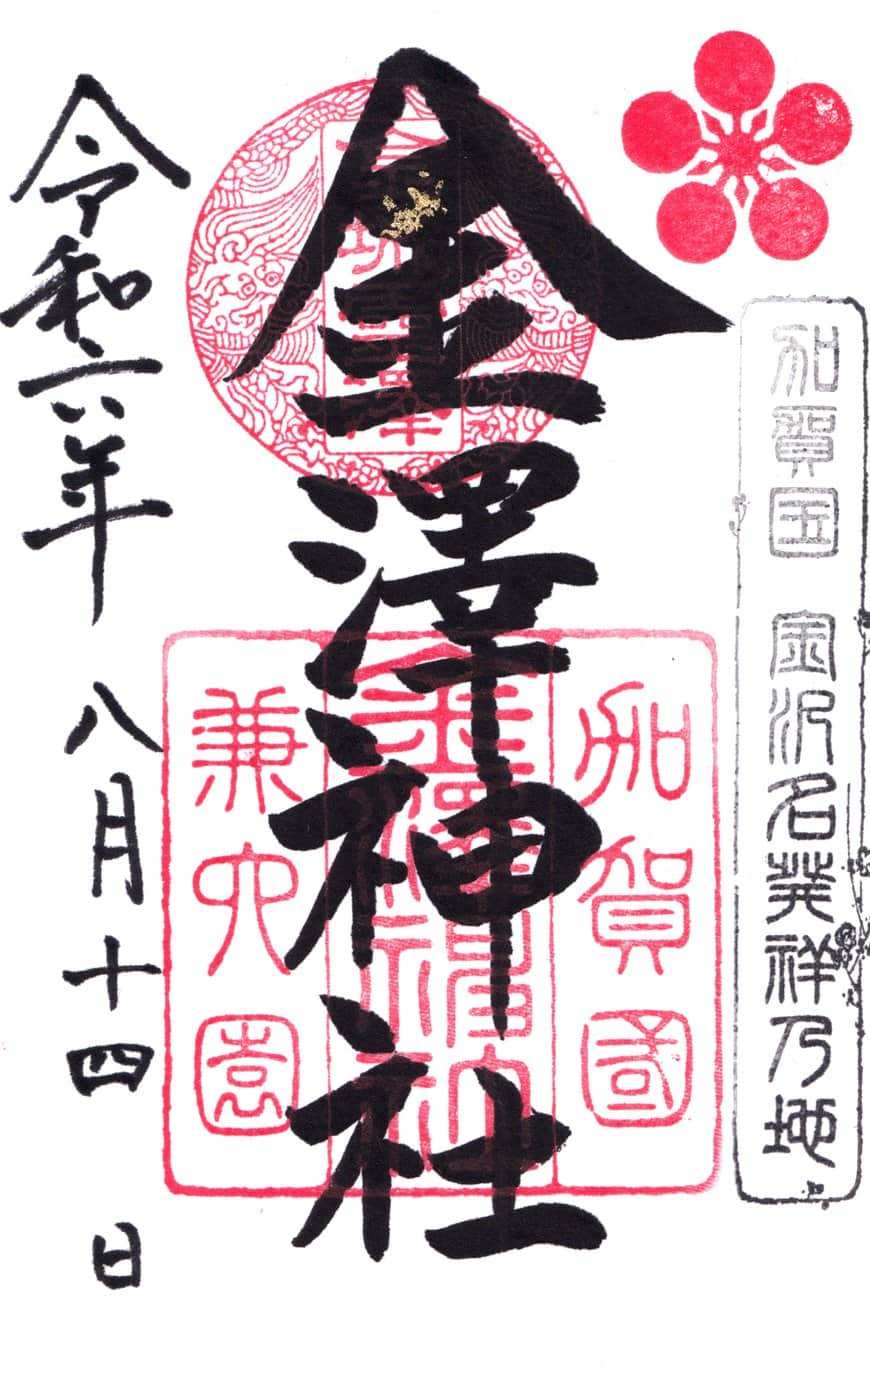 加賀国 金沢名発祥乃地
加賀國
金澤神社
兼六園
令和六年 八月十四 日